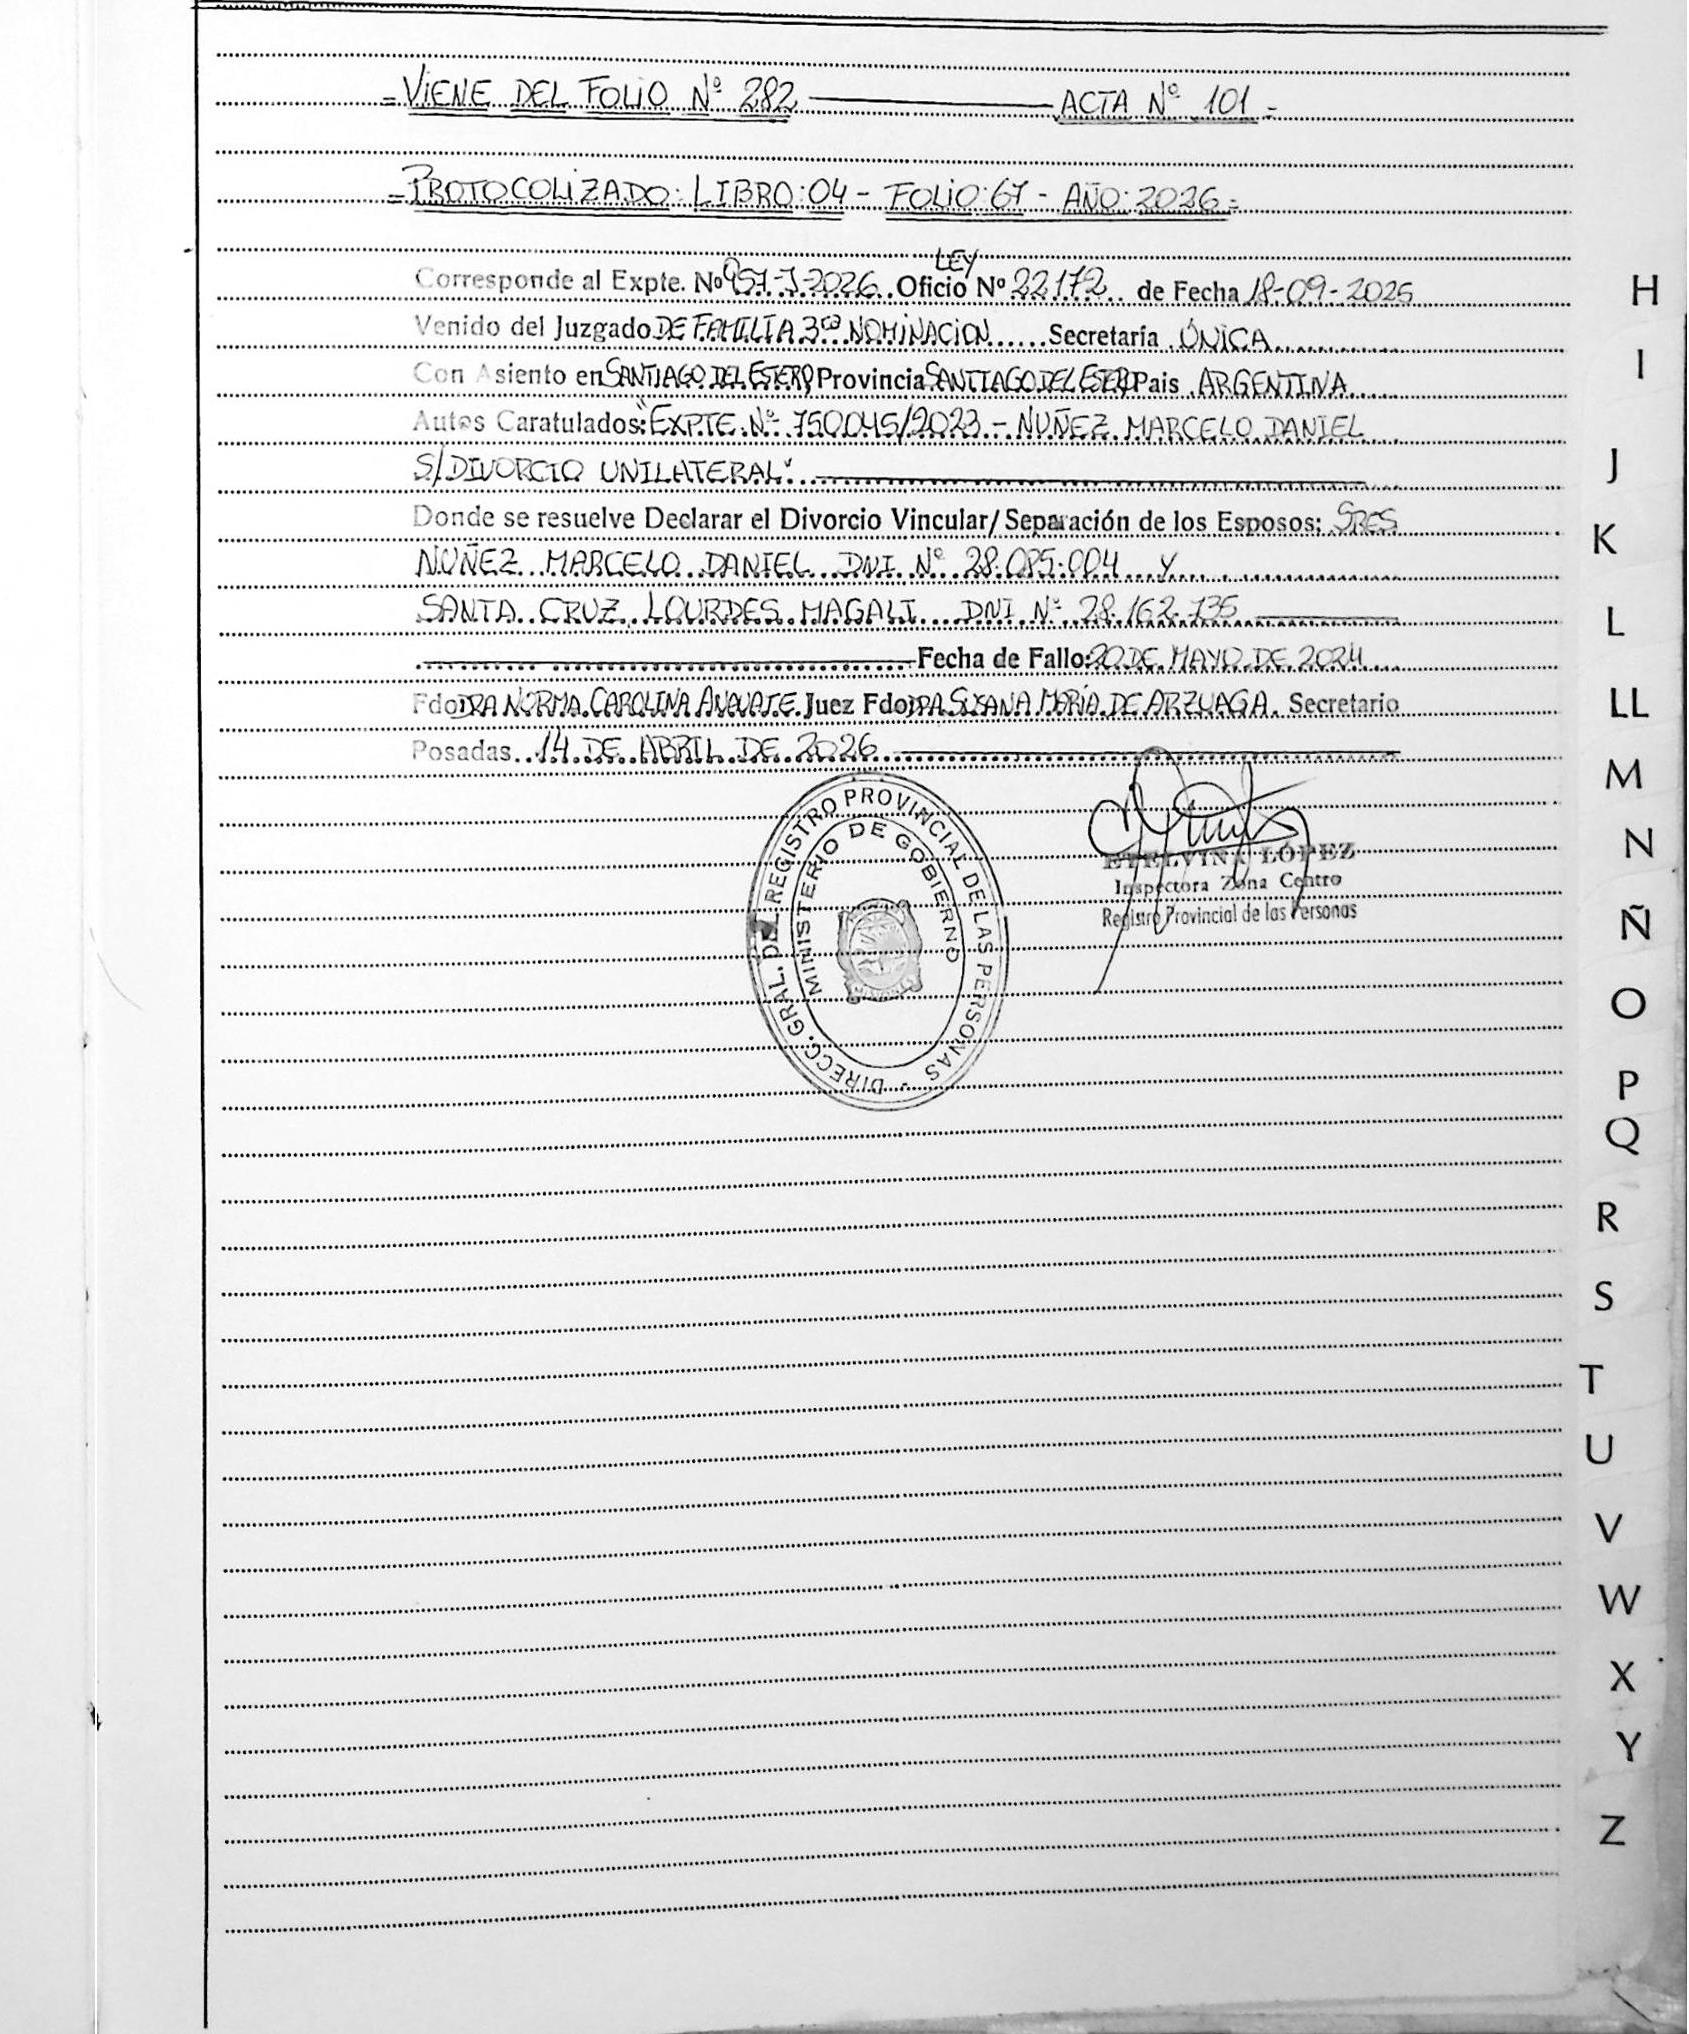 = VIENE DEL FOLIO Nº 282 ACTA Nº 101 =
= PROTOCOLIZADO: LIBRO: 04 - FOLIO: 67 - AÑO: 2026 =
LEY
Corresponde al Expte. Nº 957-J-2026 Oficio Nº 22172 de Fecha 18-09-2025
Venido del Juzgado DE FAMILIA 3ra NOMINACION Secretaría ÚNICA
Con Asiento en SANTIAGO DEL ESTERO Provincia SANTIAGO DEL ESTERO Pais ARGENTINA
Autos Caratulados: "EXPTE. Nº 750045/2023 - NUÑEZ MARCELO DANIEL
S/ DIVORCIO UNILATERAL"
Donde se resuelve Declarar el Divorcio Vincular/Separación de los Esposos: SRES
NUÑEZ MARCELO DANIEL DNI Nº 28.085.004 Y
SANTA CRUZ LOURDES MAGALI DNI Nº 28.162.735
Fecha de Fallo: 20 DE MAYO DE 2024
Fdo: DRA NORMA CAROLINA Juez Fdo: DRA SUSANA MARÍA DE ARZUAGA Secretario
Posadas 14 DE ABRIL DE 2026
DIRECC. GRAL. DEL REGISTRO PROVINCIAL DE LAS PERSONAS -
MINISTERIO DE GOBIERNO
MISIONES
ETELVINA LÓPEZ
Inspectora Zona Centro
Registro Provincial de las Personas
H
I
J
K
L
LL
M
N
Ñ
O
P
Q
R
S
T
U
V
W
X
Y
Z